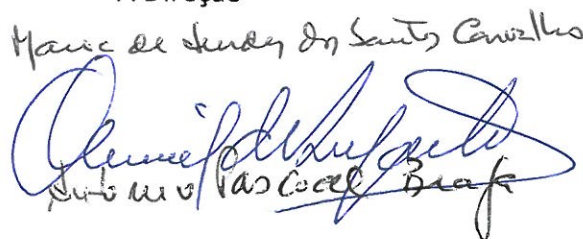 A Direção
Maria de Lurdes dos Santos Carvalho
António Pascoal Braga